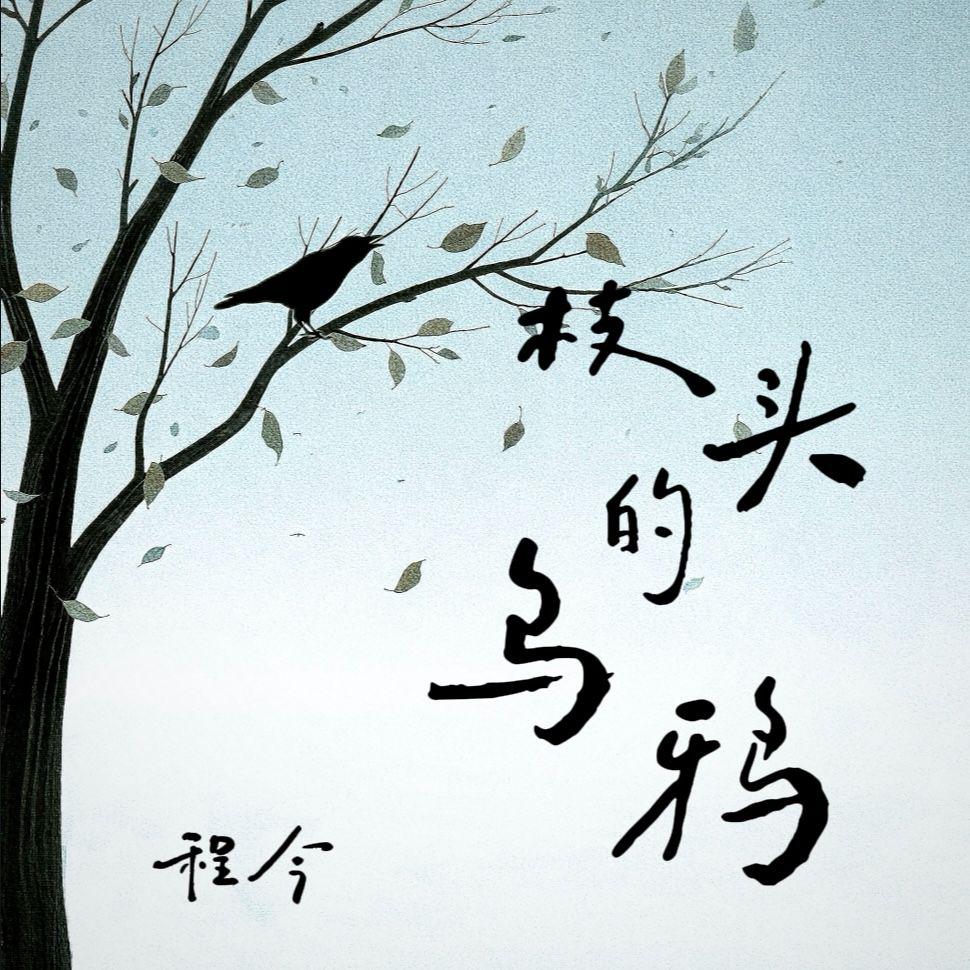 枝头的乌鸦
程今